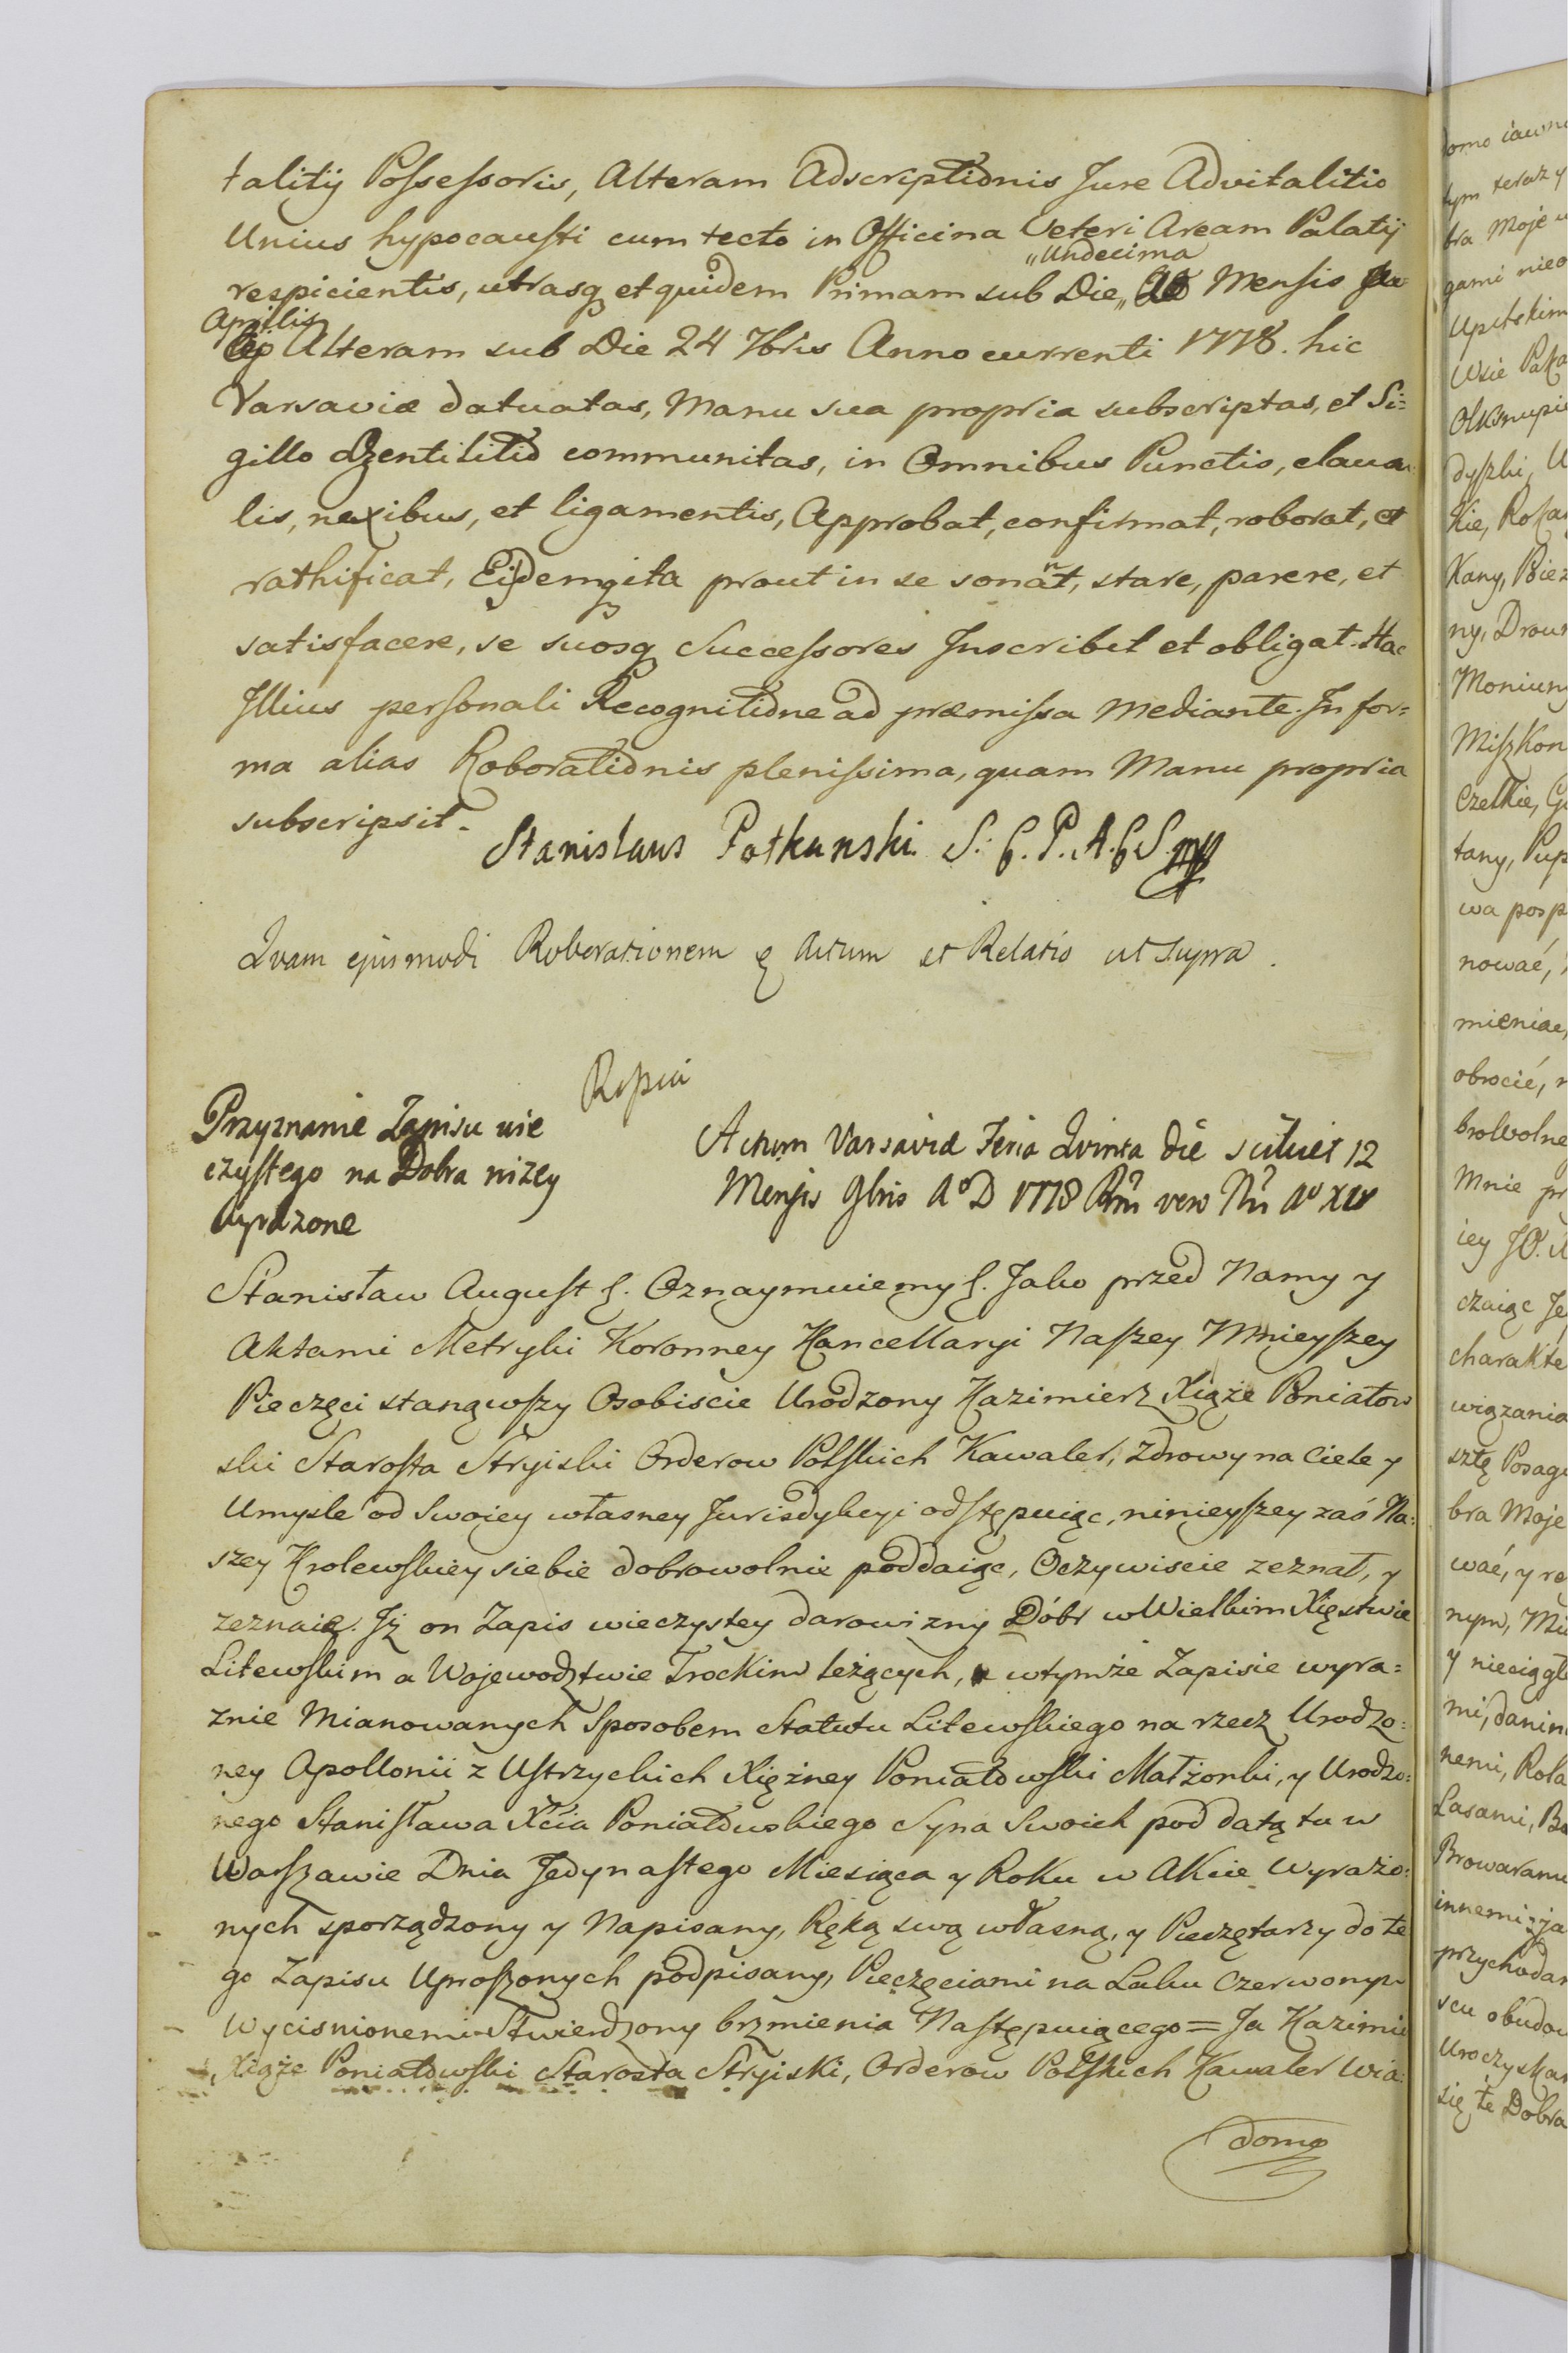 talitij Possessoris, Alteram Adscriptionis Jure Advitalitio
Unius hypocausti cum tecto in Officina Veteri Aream Palatij
"Undecima
respicientis, utrasq et quidem Primam sub Die " Mensis
Aprilis
Alteram sub Die 24 7bris Anno currenti 1778. hic
Varsaviæ datuatas, Manu sua propria subscriptas, et Si=
gillo Gentilitio communitas, in Omnibus Punctis, clausu
lis, nexibus, et ligamentis, Approbat, confirmat, roborat, et
rathificat, Eisdemq ita prout in se sonant, stare, parere, et
satisfacere, se suosq Successores Inscribit et obligat. Hac
Illius personali Recognitione ad præmissa Mediante. In for=
ma alias Roborationis plenissima, quam Manu propria
subscripsit.
Stanislaus Potkanski S. C. P. A. C S mp
Quam ejusmodi Roborationem Actum et Relatio ut supra.
Przyznanie Zapisu wie
czystego na Dobra nizey
wyrazone
Actum Varsaviæ Feria Quinta die scilicet 12
Mensis 9bris A° D 1778 Rni vero Nri A° XIV
Stanisław August §. Oznaymuiemy §. Jako przed Namy y
Aktami Metryki Koronney Kancellaryi Naszey Mnieyszey
Pieczęci stanąwszy Osobiscie Urodzony Kazimierz Xiąże Poniatow
ski Starosta Stryiski Orderow Polskich Kawaler, zdrowy na Ciele y
Umysle od Swoiey własney Jurisdykcyi odstępuiąc, ninieyszey zaś Na=
szey Krolewskiey siebie dobrowolnie poddaiąc, Oczywiscie zeznał, y
zeznaie. Jż on Zapis wieczystey darowizny Dóbr w Wielkim Xięstwie
Litewskim a Wojewodztwie Trockim leżących, w tymże Zapisie wyra=
znie Mianowanych Sposobem Statutu Litewskiego na rzecz Urodzo=
ney Apollonii z Ustrzyckich Xiężney Poniatowski Małżonki, y Urodzo=
nego Stanisława Xcia Poniatowskiego Syna Swoich pod datą tu w
Warszawie Dnia Jedynastego Miesiąca y Roku w Akcie Wyrażo=
nych sporządzony y Napisany, Ręką swą własną, y Pieczętarzy do te
go Zapisu Uproszonych podpisany, Pieczęciami na Laku Czerwonym
Wycisnionemi Stwierdzony brzmienia Następuiącego = Ja Kazimie
Xiąże Poniatowski Starosta Stryiski, Orderow Polskich Kawaler Wia=
domo